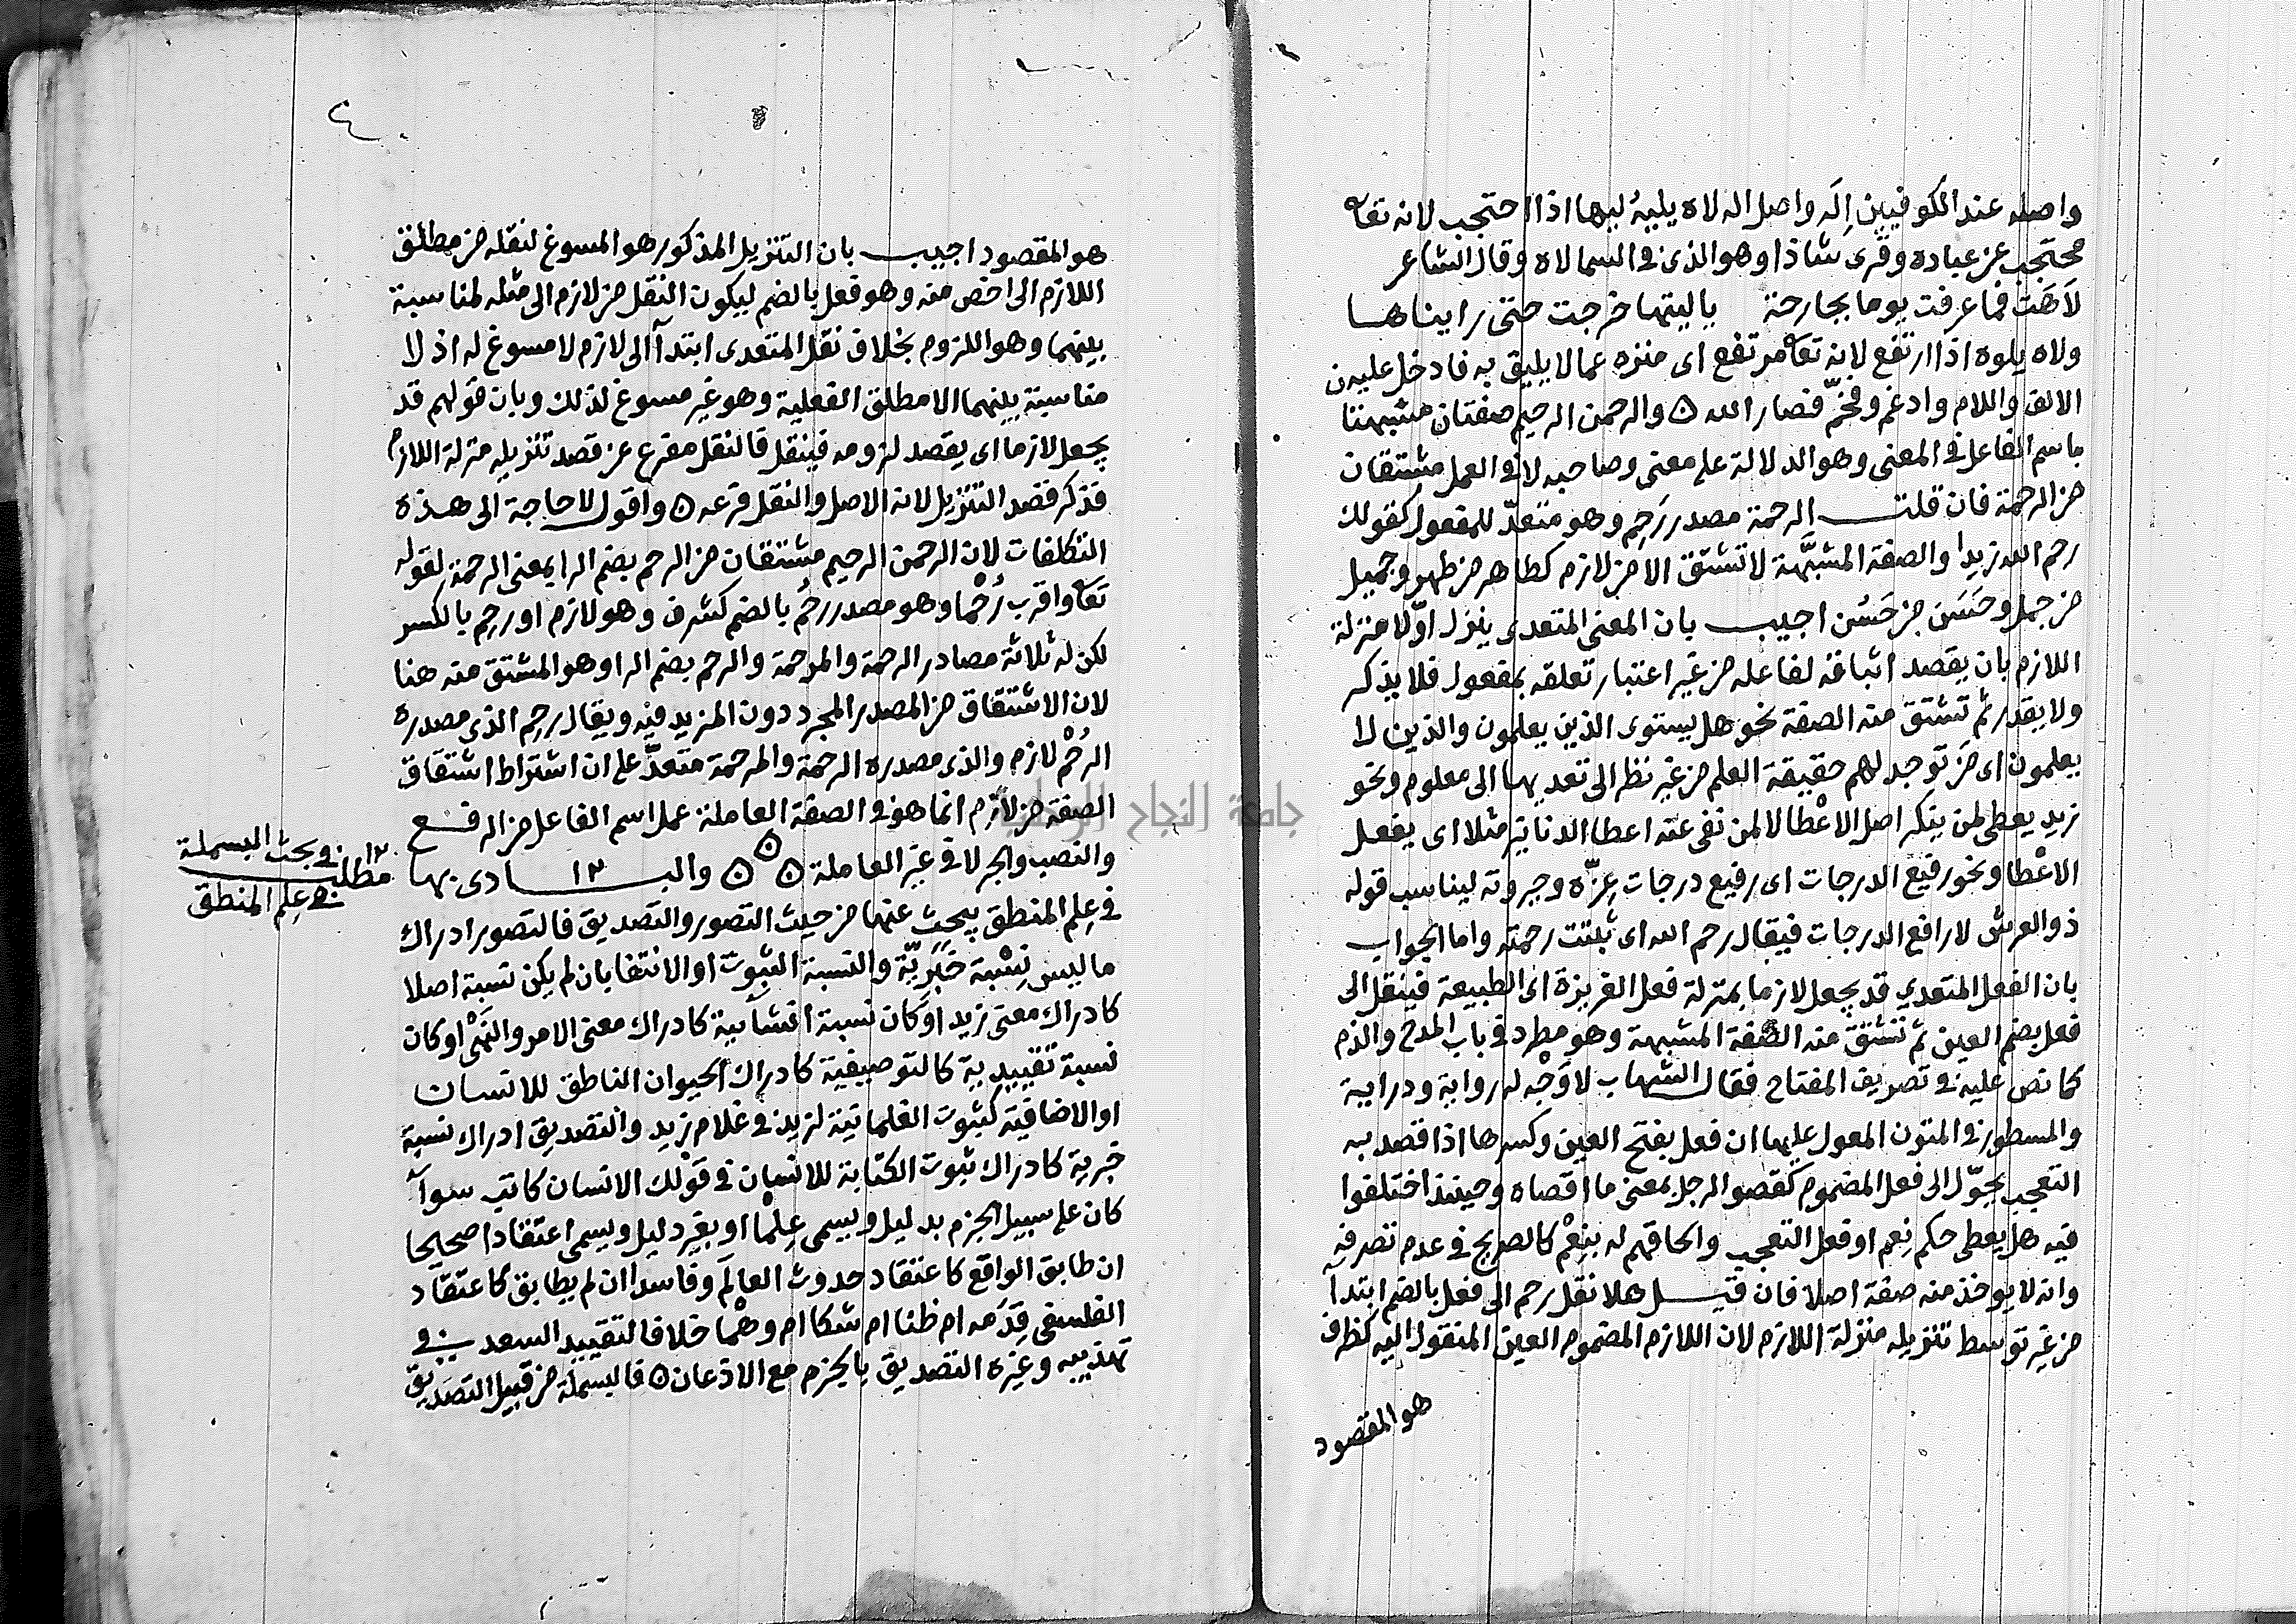 واصله عند الكوفيين إلَه واصل اله لاه يليهُ ليها اذا احتجب لانه تعالى
محتجب عن عباده وقرى شاذا وهو الذى فى السما لاه وقال الشاعر
لاَهَت فما عرفت يوما بجارحة ياليتها خرجت حتى رايناها
ولاه يلوه اذا ارتفع لانه تعالى مرتفع اى منزه عما لا يليق به فادخل عليه
الالف واللام وادغم وفخّم فصار الله ۵ والرحمن الرحيم صفتان مشبهتا
باسم الفاعل فى المعنى وهو الدلالة على معنى وصاحبه لا فى العمل مشتقان
من الرحمة فان قلت الرحمة مصدر رَحِم وهو متعدّ للمفعول كقولك
رحم الله زيدا والصفة المشبَّهة لا تشتق الا من لازم كطاهر من طهر وجميل
من جمل وحَسَن من حَسُن اجيب بان المعنى المتعدى ينزل اوّلا منزلة
اللازم بان يقصد اثباته لفاعله من غير اعتبار تعلقه بمفعول فلا يذكر
ولا يقدر ثم تشتق منه الصفة نحو هل يستوى الذين يعلمون والذين لا
يعلمون اى من توجد لهم حقيقة العلم من غير نظر الى تعديها الى معلوم ونحو
زيد يعطى لمن ينكر اصل الاعْطا لا لمن نفى عنه اعطا الدنانير مثلا اى يفعل
الاعْطا ونحو رفيع الدرجات اى رفيع درجات عِزّه وجبروته ليناسب قوله
ذو العرش لا رافع الدرجات فيقال رحم الله اى ثبتت رحمته واما الجواب
بان الفعل المتعدي قد يجعل لازما بمنزلة فعل الغريزة اى الطبيعة فينقل الى
فعل بضم العين ثم تشتق منه الصفة المشبهة وهو مطرد فى باب المدح والذم
كما نص عليه فى تصريف المفتاح فقال الشهاب لا وَجْه له رواية ودراية
والمسطور فى المتون المعول عليها ان فعل بفتح العين وكسرها اذا قصد به
التعجب يحوّل الى فعل المضموم كقضو الرجل بمعنى ما اقضاه وحينئذ اختلفوا
فيه هل يعطى حكم نِعم او فعل التعجب والحاقهم له بنِعْم كالصريح فى عدم تصرفه
وانه لا يوخذ منه صفة اصلا فان قيل هلا نقل رحم الى فعل بالضم ابتدأ
من غير توسط تنزيله منزلة اللازم لان اللازم المضموم العين المنقول اليه
هو المقصود
٤
هو المقصود اجيب بان التنزيل المذكور هو المسوغ لنقله من مطلق
اللازم الى اخص منه وهو فعل بالضم ليكون النقل من لازم الى مثله لمناسبة
بينهما وهو اللزوم بخلاف نقل المتعدى ابتدآ الى لازم لا مسوغ له اذ لا
مناسبة بينهما الا مطلق الفعلية وهو غير مسوغ لذلك وبان قولهم قد
يجعل لازما اى يقصد لزومه فينقل فالنقل مفرع عن قصد تنزيله منزلة اللازم
فذكر قصد التنزيل لانه الاصل والنقل فرعه ۵ واقول لا حاجة الى هذه
التكلفات لان الرحمن الرحيم مشتقان من الرحم بضم الرا بمعنى الرحمة لقوله
تعالى واقرب رُحْما وهو مصدر رحُم بالضم كشرف وهو لازم او رحِم بالكسر
لكن له ثلاثة مصادر الرحمة والمرحمة والرحم بضم الرا وهو المشتق منه هنا
لان الاشتقاق من المصدر المجرد دون المزيد فيه ويقال رحِم الذى مصدره
الرُحْم لازم والذى مصدره الرحمة والمرحمة متعدّ على ان اشتراط اشتقاق
الصفة من لازم انما هو فى الصفة العاملة عمل اسم الفاعل من الرفع
والنصب والجر لا فى غير العاملة ۵ ۵ ۵ والبــادى بها
١٢ مطلب فى بحث البسملة
فى علم المنطق
فى علم المنطق يبحث عنها من حيث التصور والتصديق فالتصور ادراك
ما ليس نِسْبة خَبَريّة والنسبة الثبوت او الانتفا بان لم يكن نسبة اصلا
كادراك معنى زيد او كان نسبة انشآيية كادراك معنى الامر والنَهْى او كان
نسبة تقييدية كالتوصيفية كادراك الحيوان الناطق للانسان
او الاضافية كثبوت الغلمانية لزيد فى غلام زيد والتصديق ادراك نسبة
خبرية كادراك ثبوت الكتابة للانسان فى قولك الانسان كاتب سوآ
كان على سبيل الجزم بدليل ويسمى عِلْما او بغير دليل ويسمى اعتقادا صحيحا
ان طابق الواقع كاعتقاد حدوث العالَم وفاسدا ان لم يطابق كاعتقاد
الفلسفى قِدَمه ام ظنا ام شكا ام وهْما خلافا لتقييد السعد فى
تهذيبه وغيره التصديق بالجزم مع الاذعان ۵ فالبسملة من قبيل التصديق
جامعة النجاح الوطنية